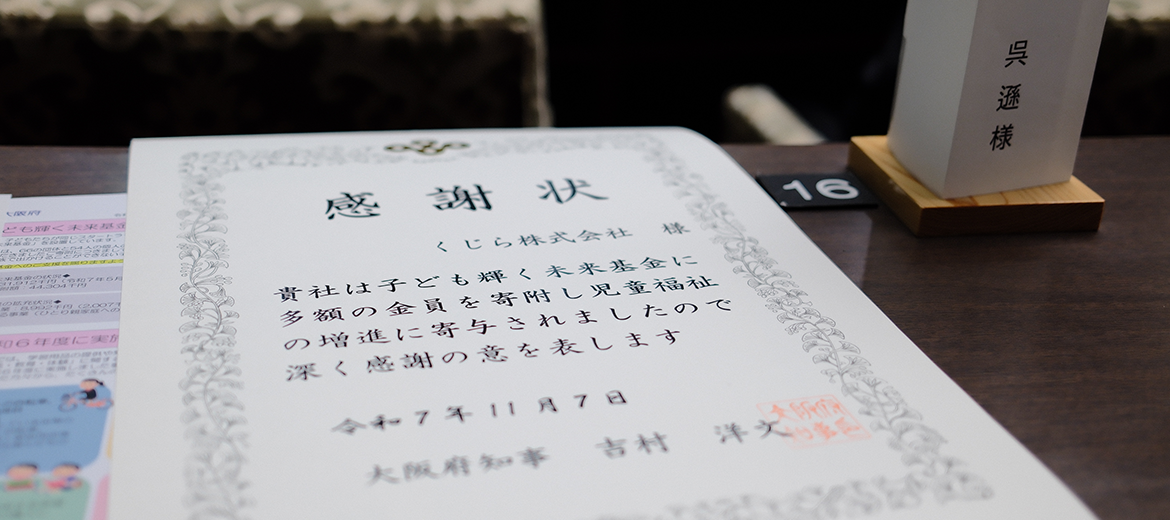 感謝状
くじら株式会社 様
貴社は子ども輝く未来基金に
多額の金員を寄附し児童福祉
の増進に寄与されましたので
深く感謝の意を表します
令和7年11月7日
大阪府知事 吉村 洋文
16
呉 遜 様
ども輝く未来基金